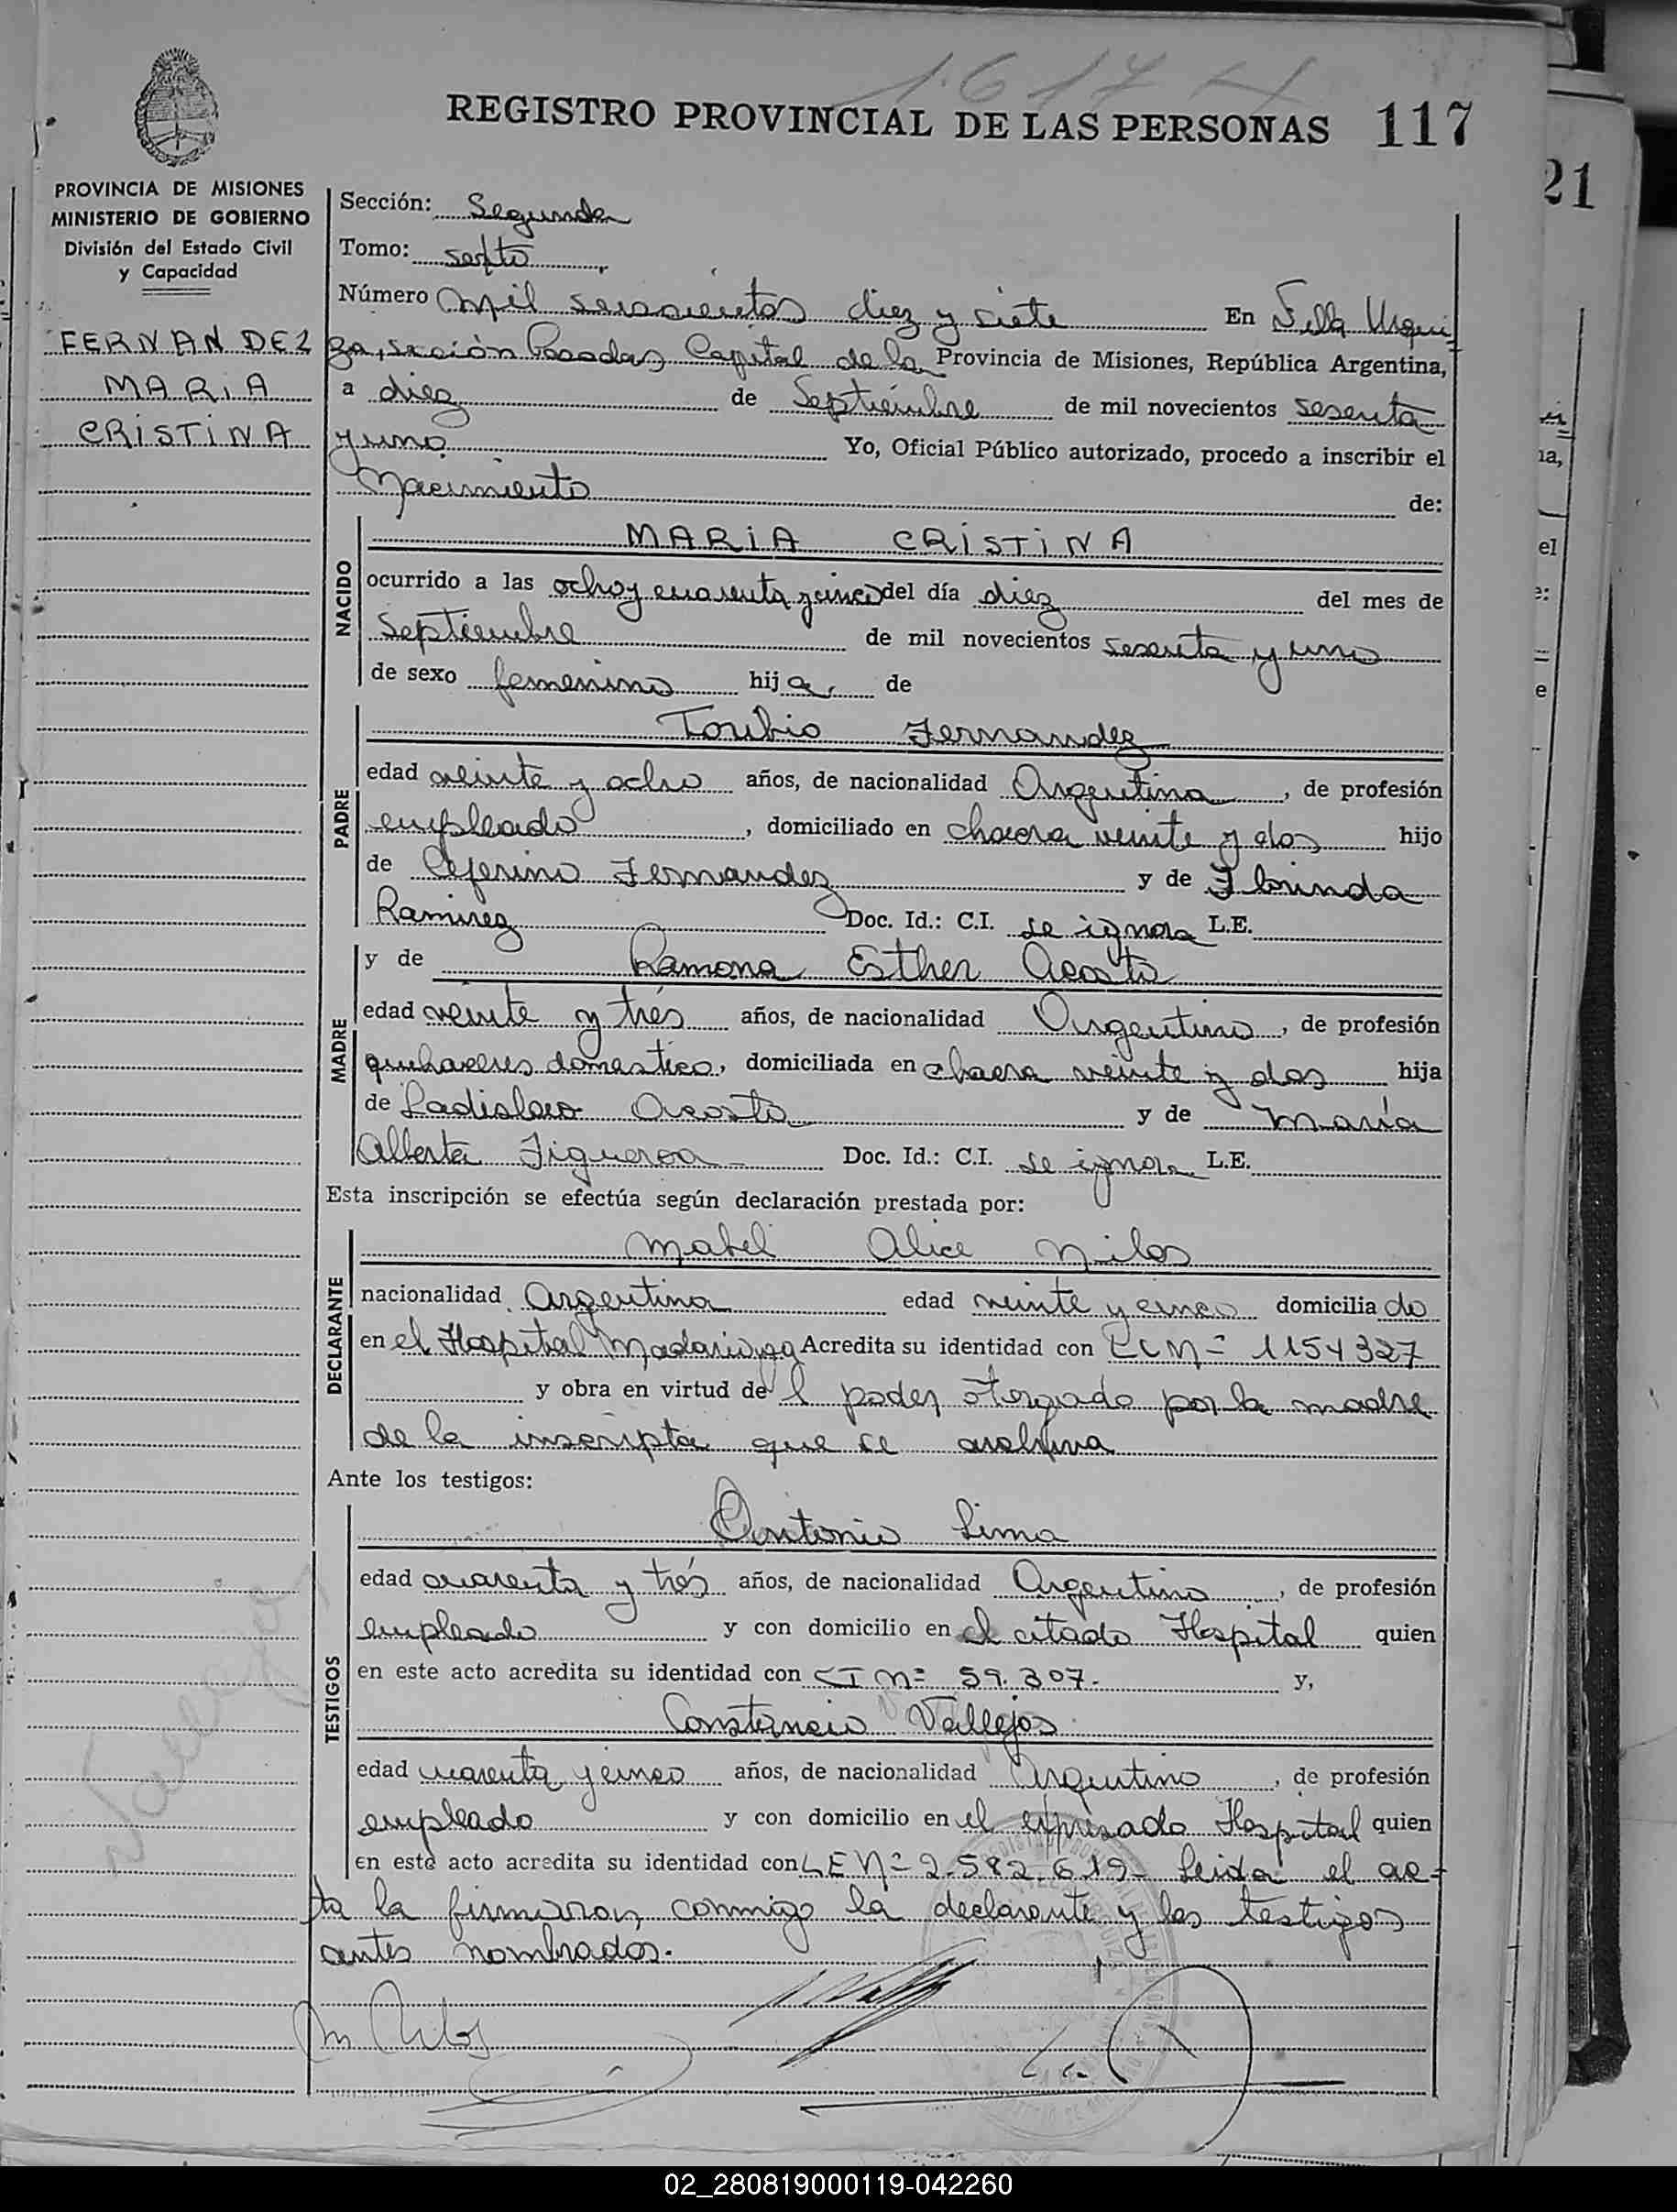 1.617
REGISTRO PROVINCIAL DE LAS PERSONAS 117
21
PROVINCIA DE MISIONES
MINISTERIO DE GOBIERNO
División del Estado Civil
y Capacidad
FERNANDEZ
MARIA
CRISTINA
Sección: Segunda
Tomo: sexto
Número mil seiscientos diez y siete En Villa Urqui
za, sección Posadas Capital de la Provincia de Misiones, República Argentina,
a diez de Septiembre de mil novecientos sesenta
y uno Yo, Oficial Público autorizado, procedo a inscribir el
Nacimiento de:
NACIDO
MARIA CRISTINA
ocurrido a las ocho y cuarenta y cinco del día diez del mes de
Septiembre de mil novecientos sesenta y uno
de sexo femenino hija de
PADRE
Toribio Fernandez
edad veinte y ocho años, de nacionalidad Argentina, de profesión
empleado, domiciliado en chacra veinte y dos hijo
de Ceferino Fernandez y de Florinda
Ramirez Doc. Id.: C.I. se ignora L.E.
MADRE
y de Ramona Esther Acosta
edad veinte y trés años, de nacionalidad Argentina, de profesión
quehaceres domestico, domiciliada en chacra veinte y dos hija
de Ladislao Acosta y de María
Alberta Figueroa Doc. Id.: C.I. se ignora L.E.
Esta inscripción se efectúa según declaración prestada por:
DECLARANTE
Mabel Alice
nacionalidad Argentina edad veinte y cinco domiciliado
en el Hospital Madariaga Acredita su identidad con LC Nº 1154327
y obra en virtud del poder otorgado por la madre
de la inscripta que se archiva
Ante los testigos:
TESTIGOS
Antonio Lima
edad cuarenta y trés años, de nacionalidad Argentino, de profesión
empleado y con domicilio en el citado Hospital quien
en este acto acredita su identidad con CI Nº 59.307.- y,
Constancio Vallejos
edad cuarenta y cinco años, de nacionalidad Argentino, de profesión
empleado y con domicilio en el expresado Hospital quien
en este acto acredita su identidad con LE Nº 2.582.619- Leida el ac-
ta la firmaron conmigo la declarante y los testigos
antes nombrados.
02_280819000119-042260